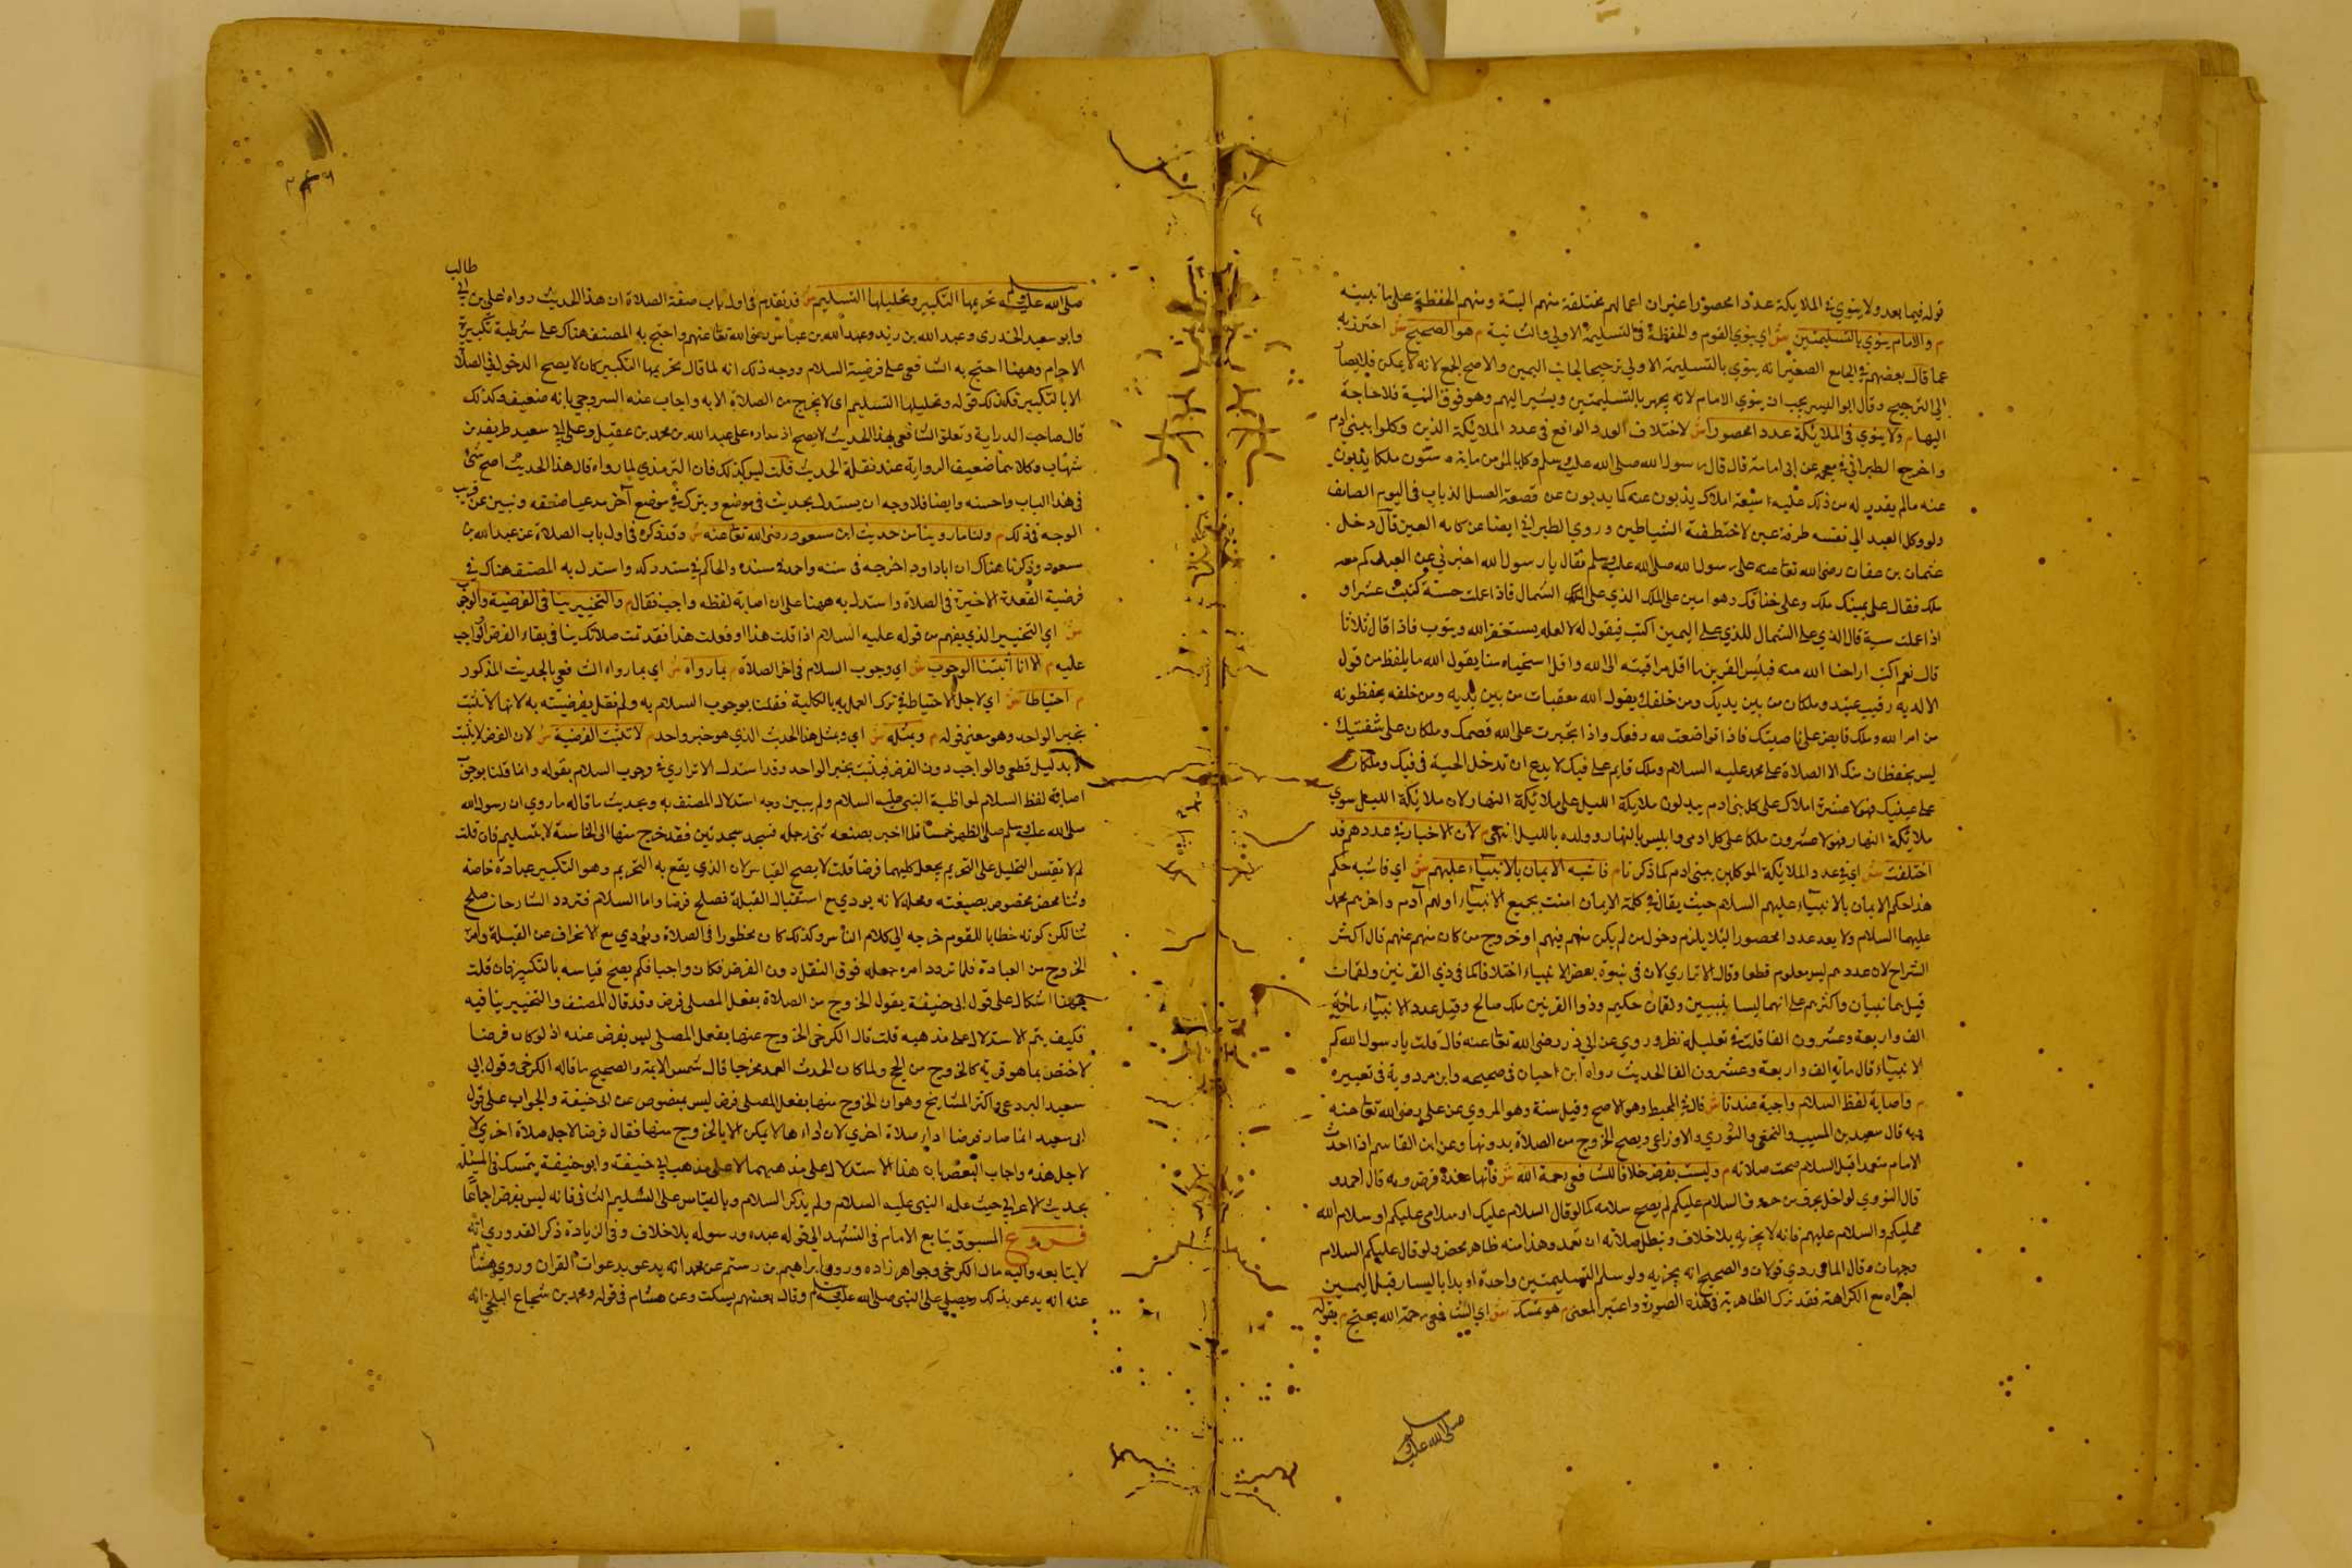 قوله فيما بعد ولا ينوي في الملايكة عددا محصورا غيران اعمالهم مختلفة منهم البتة ومنهم الحفظة على ما نبينه
م والامام ينوي بالتسليمتين ش اي ينوي القوم والحفظة في التسليمة الاولي والثانية م هو الصحيح ش احترز به
عما قال بعضهم في الجامع الصغير انه ينوي بالتسليمة الاولي ترجيحا لجانب اليمين والاصح الجمع لانه لا يمكن فلا يصار
الي الترجيح وقال ابو اليسر يجب ان ينوي الامام لانه يجهر بالتسليمتين ويشير اليهم وهو فوق النية فلا حاجة
اليها م ولا ينوي في الملائكة عددا محصورا ش لاختلاف العدد الواقع في عدد الملائكة الذين وكلوا ببني ادم
واخرج الطبراني في معجمه عن ابي امامة قال قال رسول الله صلى الله عليه وسلم وكل بالمؤمن ماية وستون ملكا يذبون
عنه مالم يقدر له من ذلك عليه سبعة املاك يذبون عنه كما يذبون عن قصعة العسل الذباب في اليوم الصائف
ولو وكل العبد الي نفسه طرفة عين لاختطفته الشياطين وروي الطبراني ايضا عن كنانة العين قال دخل
عثمان بن عفان رضي الله تعا عنه على رسول الله صلى الله عليه وسلم فقال يا رسول الله اخبرني عن العبد كم معه
ملك فقال على يمينك ملك وعلى حناتك وهو امين على الملك الذي على الشمال فاذا عملت حسنة كتبت عشرا و
اذا عملت سية قال الذي على الشمال للذي على اليمين اكتب فيقول له لا لعله يستغفر الله ويتوب فاذا قال ثلاثا
قال نعم اكتب اراحنا الله منه فبئس القرين ما اقل مراقبته الى الله واقل استحياه منا يقول الله ما يلفظ من قول
الا لديه رقيب عتيد وملكان من بين يديك ومن خلفك يقول الله معقبات من بين يديه ومن خلفه يحفظونه
من امر الله وملك قابض على ناصيتك فاذا تواضعت لله رفعك واذا تجبرت على الله قصمك وملكان على شفتيك
ليس يحفظان منك الا الصلاة على محمد عليه السلام وملك قايم على فيك لا يدع ان تدخل الحية في فيك وملكان
على عينيك فهولا عشرة املاك على كل بني ادم يبدلون ملايكة الليل على ملائكة النهار لان ملائكة الليل سوي
ملائكة النهار فهولا عشرون ملكا على كل ادمي وابليس بالنهار وولده بالليل انتهي م لان الاخبار في عددهم قد
اختلفت ش اي في عدد الملائكة الموكلين ببني ادم كما ذكرنا م فاشبه الايمان بالانبياء عليهم ش اي فاشبه حكم
هذا حكم الايمان بالانبياء عليهم السلام حيث يقال في كلمة الايمان امنت بجميع الانبياء اولهم آدم واخرهم محمد
عليهما السلام ولا يعد عددا محصورا ليلا يلزم دخول من لم يكن منهم فيهم او خروج من كان منهم عنهم قال اكثر
الشراح لان عددهم ليس معلوم قطعا وقال الاتراري لان في نبوة بعض الانبياء اختلافا كما في ذي القرنين ولقمان
قيل هما نبيان واكثرهم على انهما ليسا بنبيين ولقمان حكيم وذو القرنين ملك صالح وقيل عدد الانبياء ماية
الف واربعة وعشرون الفا قلت في تعليله نظر وروي عن ابي ذر رضي الله تعا عنه قال قلت يا رسول الله كم
الانبياء قال ماية الف واربعة وعشرون الفا الحديث رواه ابن حبان في صحيحه وابن مردوية في تفسيره
م واصابة لفظ السلام واجبة عندنا ش قال في المحيط وهو الاصح وقيل سنة وهو المروي عن على رضي الله تعا عنه
وبه قال سعيد بن المسيب والنخعي والثوري والاوزاعي ويصح الخروج من الصلاة بدونها وعن ابن القاسم اذا احدث
الامام متعمدا قبل السلام صحت صلاته م وليست بفرض خلافا للشافعي رحمة الله ش فانها عنده فرض وبه قال احمد و
قال النووي لو اخل بحرف من حروف السلام عليكم لم يصح سلامه كما لو قال السلام عليك او سلامي عليكم او سلام الله
عليكم والسلام عليهم فانه لا يجزيه بلا خلاف وتبطل صلاته ان تعمد وهذا منه ظاهر محض ولو قال عليكم السلام
وجهان وقال الماوردي قولان والصحيح انه يجزيه ولو سلم التسليمتين واحدة او بدا باليسار قبل اليمين
اجزاه مع الكراهة فقد ترك الظاهرية في هذه الصورة واعتبر المعنى م هو تمسك ش اي الشافعي رحمة الله يحتج م بقوله
صلى الله عليه وسلم
طالب
صلى الله عليه وسلم تحريمها التكبير وتحليلها التسليم ش قد تقدم في اول باب صفة الصلاة ان هذا الحديث رواه على بن ابي
وابو سعيد الخدري وعبد الله بن زيد وعبد الله بن عباس رضي الله تعا عنهم واحتج به المصنف هناك على شرطية تكبيرة
الاحرام وههنا احتج به الشافعي على فرضية السلام ووجه ذلك انه لما قال تحريمها التكبير كان لا يصح الدخول في الصلاة
الا بالتكبير فكذلك قوله وتحليلها التسليم اى لا يخرج من الصلاة الا به واجاب عنه السروجي بانه ضعيف وكذلك
قال صاحب الدراية وتعلق الشافعي بهذا الحديث لا يصح اذ مداره على عبد الله بن محمد بن عقيل وعلى ابي سعيد طريف بن
شهاب وكلاهما ضعيف الرواية عند نقلة الحديث قلت ليس كذلك فان الترمذي لما رواه قال هذا الحديث اصح شئ
في هذا الباب واحسنه وايضا فلا وجه ان يستدل بحديث في موضع ويترك في موضع آخر مدعيا ضعفه ونبين عن قريب
الوجه في ذلك م ولنا ما روينا من حديث ابن مسعود رضي الله تعا عنه ش وقد ذكره في اول باب الصلاة عن عبد الله بن
مسعود وذكرنا هناك ان ابا داود اخرجه في سننه واحمد في مسنده والحاكم في مستدركه واستدل به المصنف هناك في
فرضية القعدة الاخيرة في الصلاة واستدل به ههنا على ان اصابة لفظه واجب فقال م والتخيير ينافي الفرضية والوجوب
ش اي التخيير الذي يفهم من قوله عليه السلام اذا قلت هذا او فعلت هذا فقد تمت صلاتك ينافي بقاء الفرض الواجب
عليه م الا انا اثبتنا الوجوب ش اي وجوب السلام في اخر الصلاة م بما رواه ش اي بما رواه الشافعي بالحديث المذكور
م احتياطا ش اي لاجل الاحتياط في ترك العمل به بالكلية فقلنا بوجوب السلام به ولم نقل بفرضيته به لانها لا تثبت
بخبر الواحد وهو معني قوله م وبمثله ش اي وبمثل هذا الحديث الذي هو خبر واحد م لا تثبت الفرضية ش لان الفرض لا يثبت
الا بدليل قطعي والواجب دون الفرض فيثبت بخبر الواحد وقد استدل الاتراري في وجوب السلام بقوله وانما قلنا بوجوب
اصابة لفظ السلام لمواظبة النبي عليه السلام ولم يبين وجه استدلال المصنف به وبحديث ما قاله ما روي ان رسول الله
صلى الله عليه وسلم صلى الظهر خمسا فلما اخبر بصنعه ثنى رجله فسجد سجدتين فقد خرج منها الى الخامسة لا بتسليم فان قلت
لم لا تقيس التحليل على التحريم يجعل كليهما فرضا قلت لا يصح القياس لان الذي يقع به التحريم وهو التكبير عبادة خاصة
وثنا محض مخصوص بصيغته ومحله لانه يودي مع استقبال القبلة فصلح فرضا واما السلام فتردد الشارحان صلح
ثنا لكن كونه خطابا للقوم خرجه الى كلام الناس وكذلك كان محظورا في الصلاة ويؤدي مع الانحراف عن القبلة وامر
الخروج من العبادة فلما تردد امره جعله فوق النفل دون الفرض فكان واجبا فكم يصح قياسه بالتكبير فان قلت
هنا اشكال على قول ابي حنيفة يقول الخروج من الصلاة بفعل المصلى فرض وقد قال المصنف والتخيير ينافيه
فكيف يتم الاستدلال على مذهبه قلت قال الكرخي الخروج عنها بفعل المصلى ليس بفرض عنده اذ لو كان فرضا
لاختص بما هو قربة كالخروج من الحج ولما كان الحدث العمد مخرجا قال شمس الايمة والصحيح ما قاله الكرخي وقول ابي
سعيد البردعي واكثر المشايخ وهو ان الخروج منها بفعل المصلى فرض ليس بمنصوص عن ابى حنيفة والجواب على قول
ابى سعيد انما صار فرضا اداء صلاة اخري لان اداءها لا يمكن الا بالخروج منها فقال فرضا لاجل صلاة اخري لا
لاجل هذه واجاب البعض بان هذا الاستدلال على مذهبهما لا على مذهب ابي حنيفة وابو حنيفة يتمسك في المسئلة
بحديث الاعرابي حيث علمه النبي عليه السلام ولم يذكر السلام وبالقياس على التسليم الثاني فانه ليس بفرض اجماعا
فروع المسبوق يتابع الامام في التشهد الى قوله عبده ورسوله بلا خلاف وفي الزيادة ذكر القدوري انه
لا يتابعه واليه مال الكرخي وجواهر زاده وروي ابراهيم بن رستم عن محمد انه يدعو بدعوات القران وروي هشام
عنه انه يدعو بذلك ويصلي على النبي صلى الله عليه وسلم وقال بعضهم يسكت وعن هشام في قوله ومحمد بن شجاع البلخي انه